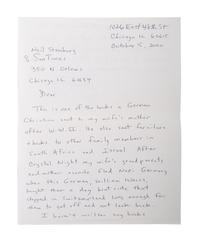 1026 East 46th St
Chicago IL 60615
October 5, 2020
Neil Steinberg
% Sun Times
350 N Orleans
Chicago IL 60654
Dear
This is one of the books a German
Christian sent to my wife's mother
after W.W.II. He also sent furniture
+ books to other family members in
South Africa and Israel. After
Crystal Night my wife's grandparents
and mother could flee Nazi Germany
when this German, William
bought them a day boat ride that
stopped in Switzerland long enough for
them to get off and not look back.
I haven't written any books